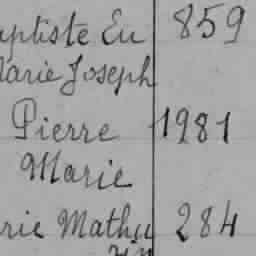 aptiste Eu 859
Marie Joseph
Pierre 1981
Marie
rie Mathu 284
rin